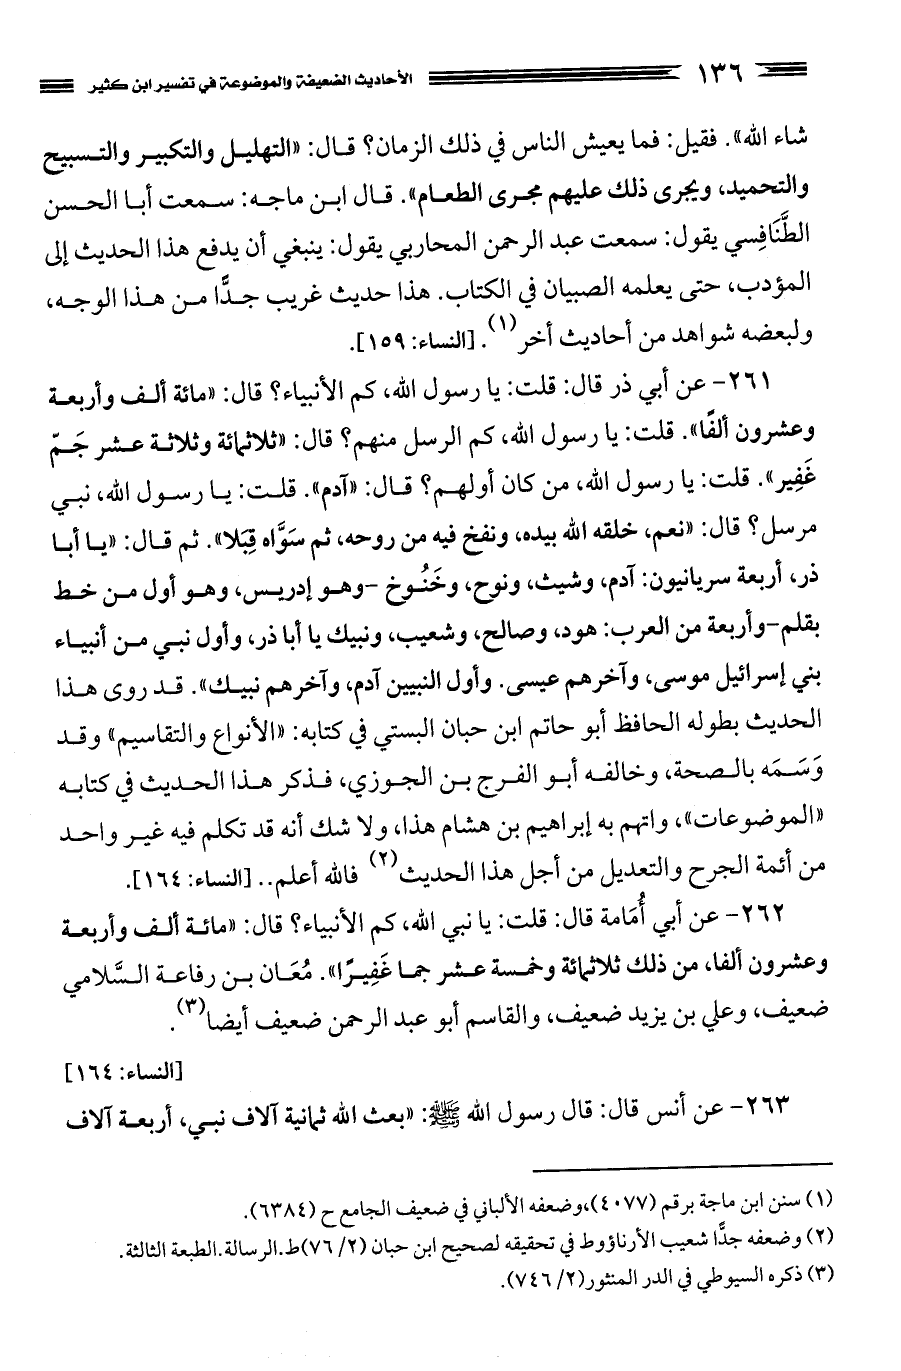 ١٣٦ الأحاديث الضعيفة والموضوعة في تفسير ابن كثير
شاء الله». فقيل: فما يعيش الناس في ذلك الزمان؟ قال: «التهليل والتكبير والتسبيح
والتحميد، ويجري ذلك عليهم مجرى الطعام». قال ابن ماجه: سمعت أبا الحسن
الطَّنَافِسي يقول: سمعت عبد الرحمن المحاربي يقول: ينبغي أن يدفع هذا الحديث إلى
المؤدب، حتى يعلمه الصبيان في الكتاب. هذا حديث غريب جدًّا من هذا الوجه،
ولبعضه شواهد من أحاديث أخر(١). [النساء: ١٥٩].
٢٦١- عن أبي ذر قال: قلت: يا رسول الله، كم الأنبياء؟ قال: «مائة ألف وأربعة
وعشرون ألفًا». قلت: يا رسول الله، كم الرسل منهم؟ قال: «ثلاثمائة وثلاثة عشر جَمّ
غَفِير». قلت: يا رسول الله، من كان أولهم؟ قال: «آدم». قلت: يا رسول الله، نبي
مرسل؟ قال: «نعم، خلقه الله بيده، ونفخ فيه من روحه، ثم سَوَّاه قِبَلا». ثم قال: «يا أبا
ذر، أربعة سريانيون: آدم، وشيث، ونوح، وخَنُوخ -وهو إدريس، وهو أول من خط
بقلم-وأربعة من العرب: هود، وصالح، وشعيب، ونبيك يا أبا ذر، وأول نبي من أنبياء
بني إسرائيل موسى، وآخرهم عيسى. وأول النبيين آدم، وآخرهم نبيك». قد روى هذا
الحديث بطوله الحافظ أبو حاتم ابن حبان البستي في كتابه: «الأنواع والتقاسيم» وقد
وَسَمَه بالصحة، وخالفه أبو الفرج بن الجوزي، فذكر هذا الحديث في كتابه
«الموضوعات»، واتهم به إبراهيم بن هشام هذا، ولا شك أنه قد تكلم فيه غير واحد
من أئمة الجرح والتعديل من أجل هذا الحديث(٢) فالله أعلم.. [النساء: ١٦٤].
٢٦٢- عن أبي أُمَامة قال: قلت: يا نبي الله، كم الأنبياء؟ قال: «مائة ألف وأربعة
وعشرون ألفا، من ذلك ثلاثمائة وخمسة عشر جما غَفِيرًا». مُعَان بن رفاعة السَّلامي
ضعيف، وعلي بن يزيد ضعيف، والقاسم أبو عبد الرحمن ضعيف أيضا(٣).
[النساء: ١٦٤]
٢٦٣- عن أنس قال: قال رسول الله ﷺ: «بعث الله ثمانية آلاف نبي، أربعة آلاف
(١) سنن ابن ماجة برقم (٤٠٧٧)،وضعفه الألباني في ضعيف الجامع ح (٦٣٨٤).
(٢) وضعفه جدًّا شعيب الأرناؤوط في تحقيقه لصحيح ابن حبان (٢/ ٧٦)ط.الرسالة.الطبعة الثالثة.
(٣) ذكره السيوطي في الدر المنثور(٢/ ٧٤٦).